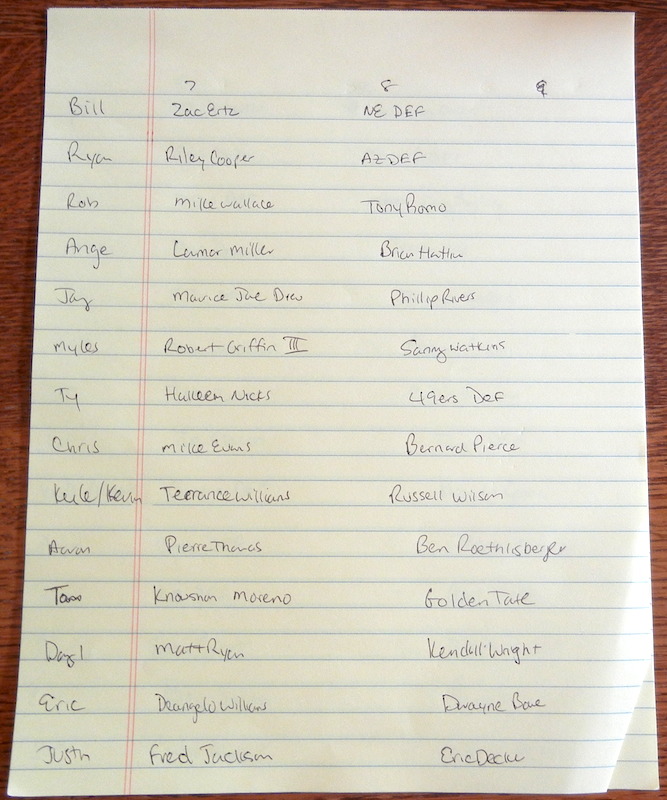 7 8 9
Bill Zac Ertz NE DEF
Ryan Riley Cooper AZ DEF
Rob Mike Wallace Tony Romo
Ange Lamar Miller Brian
Jay Maurice Jone Drew Phillip Rivers
Myles Robert Griffin III Sammy Watkins
Ty Hakeem Nicks 49ers Def
Chris Mike Evans Bernard Pierce
Kyle/Kevin Terrance Williams Russell Wilson
Aaron Pierre Thomas Ben Roethlisberger
Tom Knowshon Moreno Golden Tate
Matt Ryan Kendall Wright
Eric Deangelo Williams Dwayne Bowe
Justin Fred Jackson Eric Decker